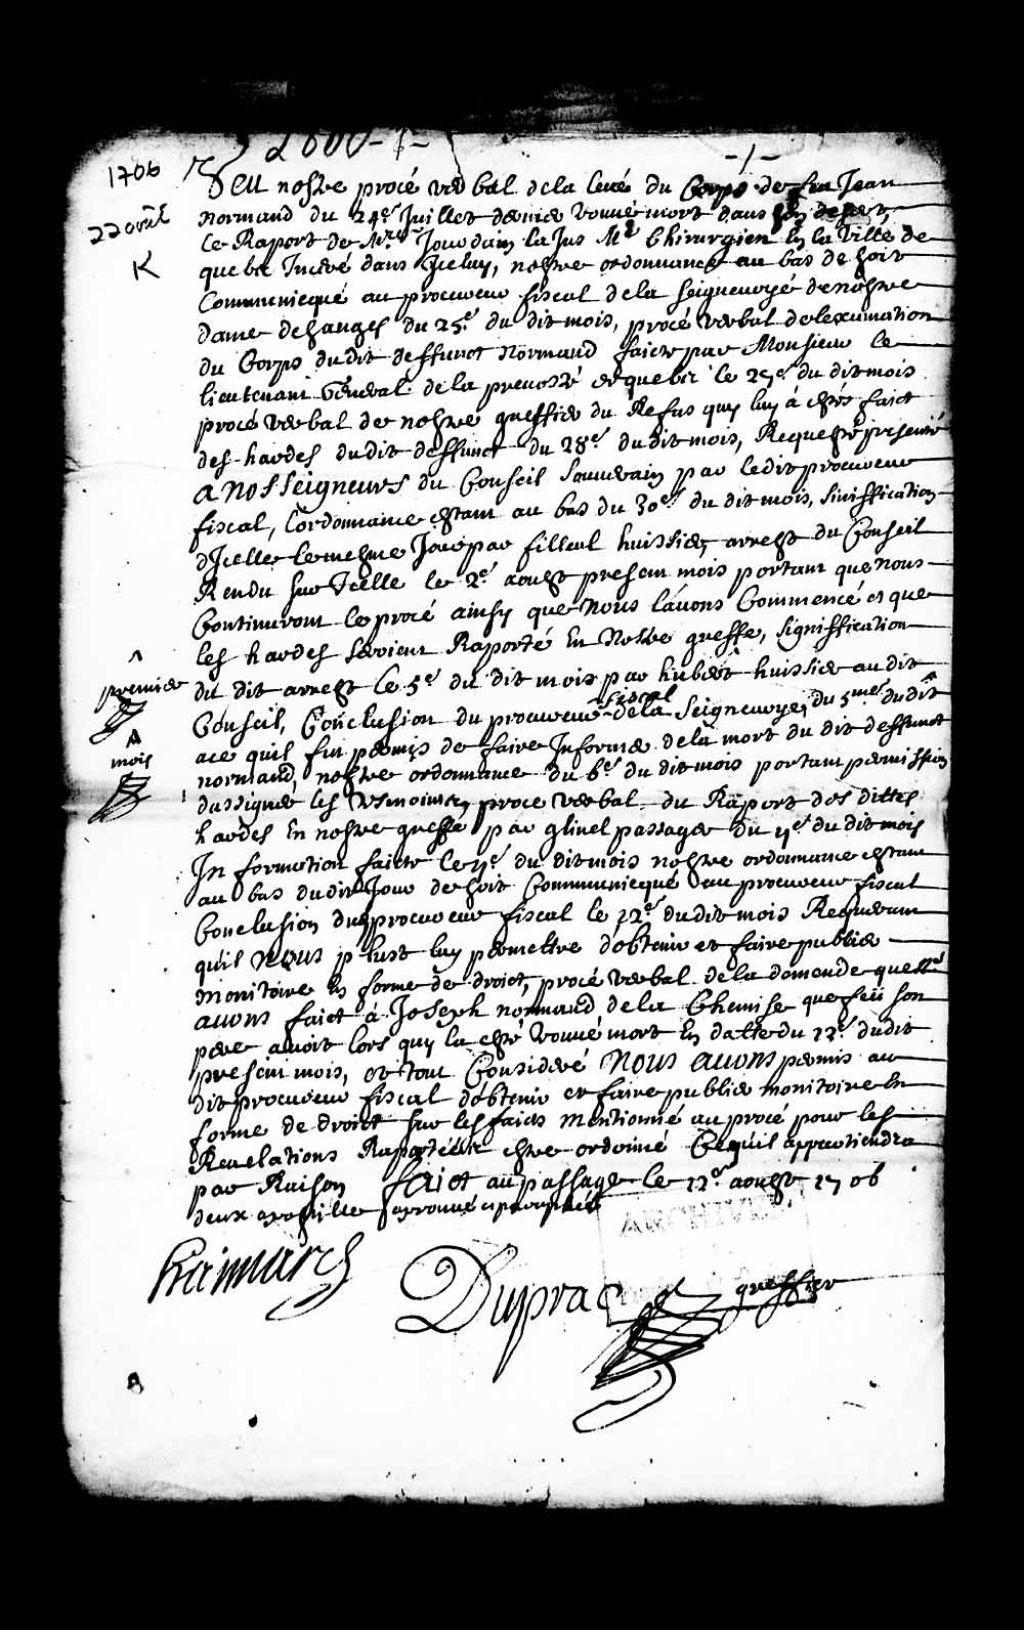 2000-1-
-/-
1706
22 avril
K
Veu nostre procé verbal de la levé du Corps de feu Jean
normand du 24e. Juillet dernier trouvé mort dans son desert,
le Raport de Mre Jourdain la Jus Me Chirurgien en la Ville de
quebec Inceré dans Iceluy, nostre ordonnance au bas de soit
Communicqué au procureur fiscal de la seigneuryé de nostre
dame des anges du 25e. du dit mois, procé verbal de lexumation
du Corps du dit deffunct normand faicte par Monsieur le
lieutenant General de la prevosté de quebec le 27e. du dit mois
procé verbal de nostre greffier du Refus quy luy à esté faict
des hardes du dit deffunct du 28e. du dit mois, Requeste presenté
a nosseigneurs du Conseil Souverain par le dit procureur
fiscal, Lordonnance estant au bas du 30e. du dit mois, sinissfication
dIcelle le mesme Jour par filleul huissier, arrest du Conseil
Rendu sur Icelle le 2e. aoust present mois portant que nous
Continuront le procé ainsy que nous lavons Commencé et que
les hardes seroient Raporté En Nostre greffe, signiffication
du dit arrest le 5e. du dit mois par hubert huissier au dit
premier
Conseil, Conclusion du procureur fiscal de la Seigneurye, du 5me. du dit
mois
ace quil fut permis de faire Informer de la mort du dit deffunct
normand, nostre ordonnance du 6e. du dit mois portant permission
dassigner les tesmoins, procé verbal du Raport des dittes
hardes En nostre greffe par glinel passager du 7e. du dit mois
Information faicte le 7e. du dit mois nostre ordonnance estant
au bas du dit Jour de soit Communicqué au procureur fiscal
Conclusion du procureur fiscal le 12e. du dit mois Requerant
quil nous plust luy permettre dobtenir et faire publier
monitoire en forme de droict, procé verbal de la demende que
avons faict à Joseph normand de la Chemise que feü son
pere avoit lors quy la esté trouvé mort En datte du 12e. du dit
present mois, et tout Consideré nous avons permis au
dit procureur fiscal dobtenir et faire publier monitoire En
forme de droict sur les faicts mentionné au procé pour les
Revelations Raporté Estre ordonné Ce quil appartiendra
par Raison faict au passage le 12e. aoust 1706
deux apostille aprouvé et paraphée
haimard
Duprac greffier
ARCHIVES